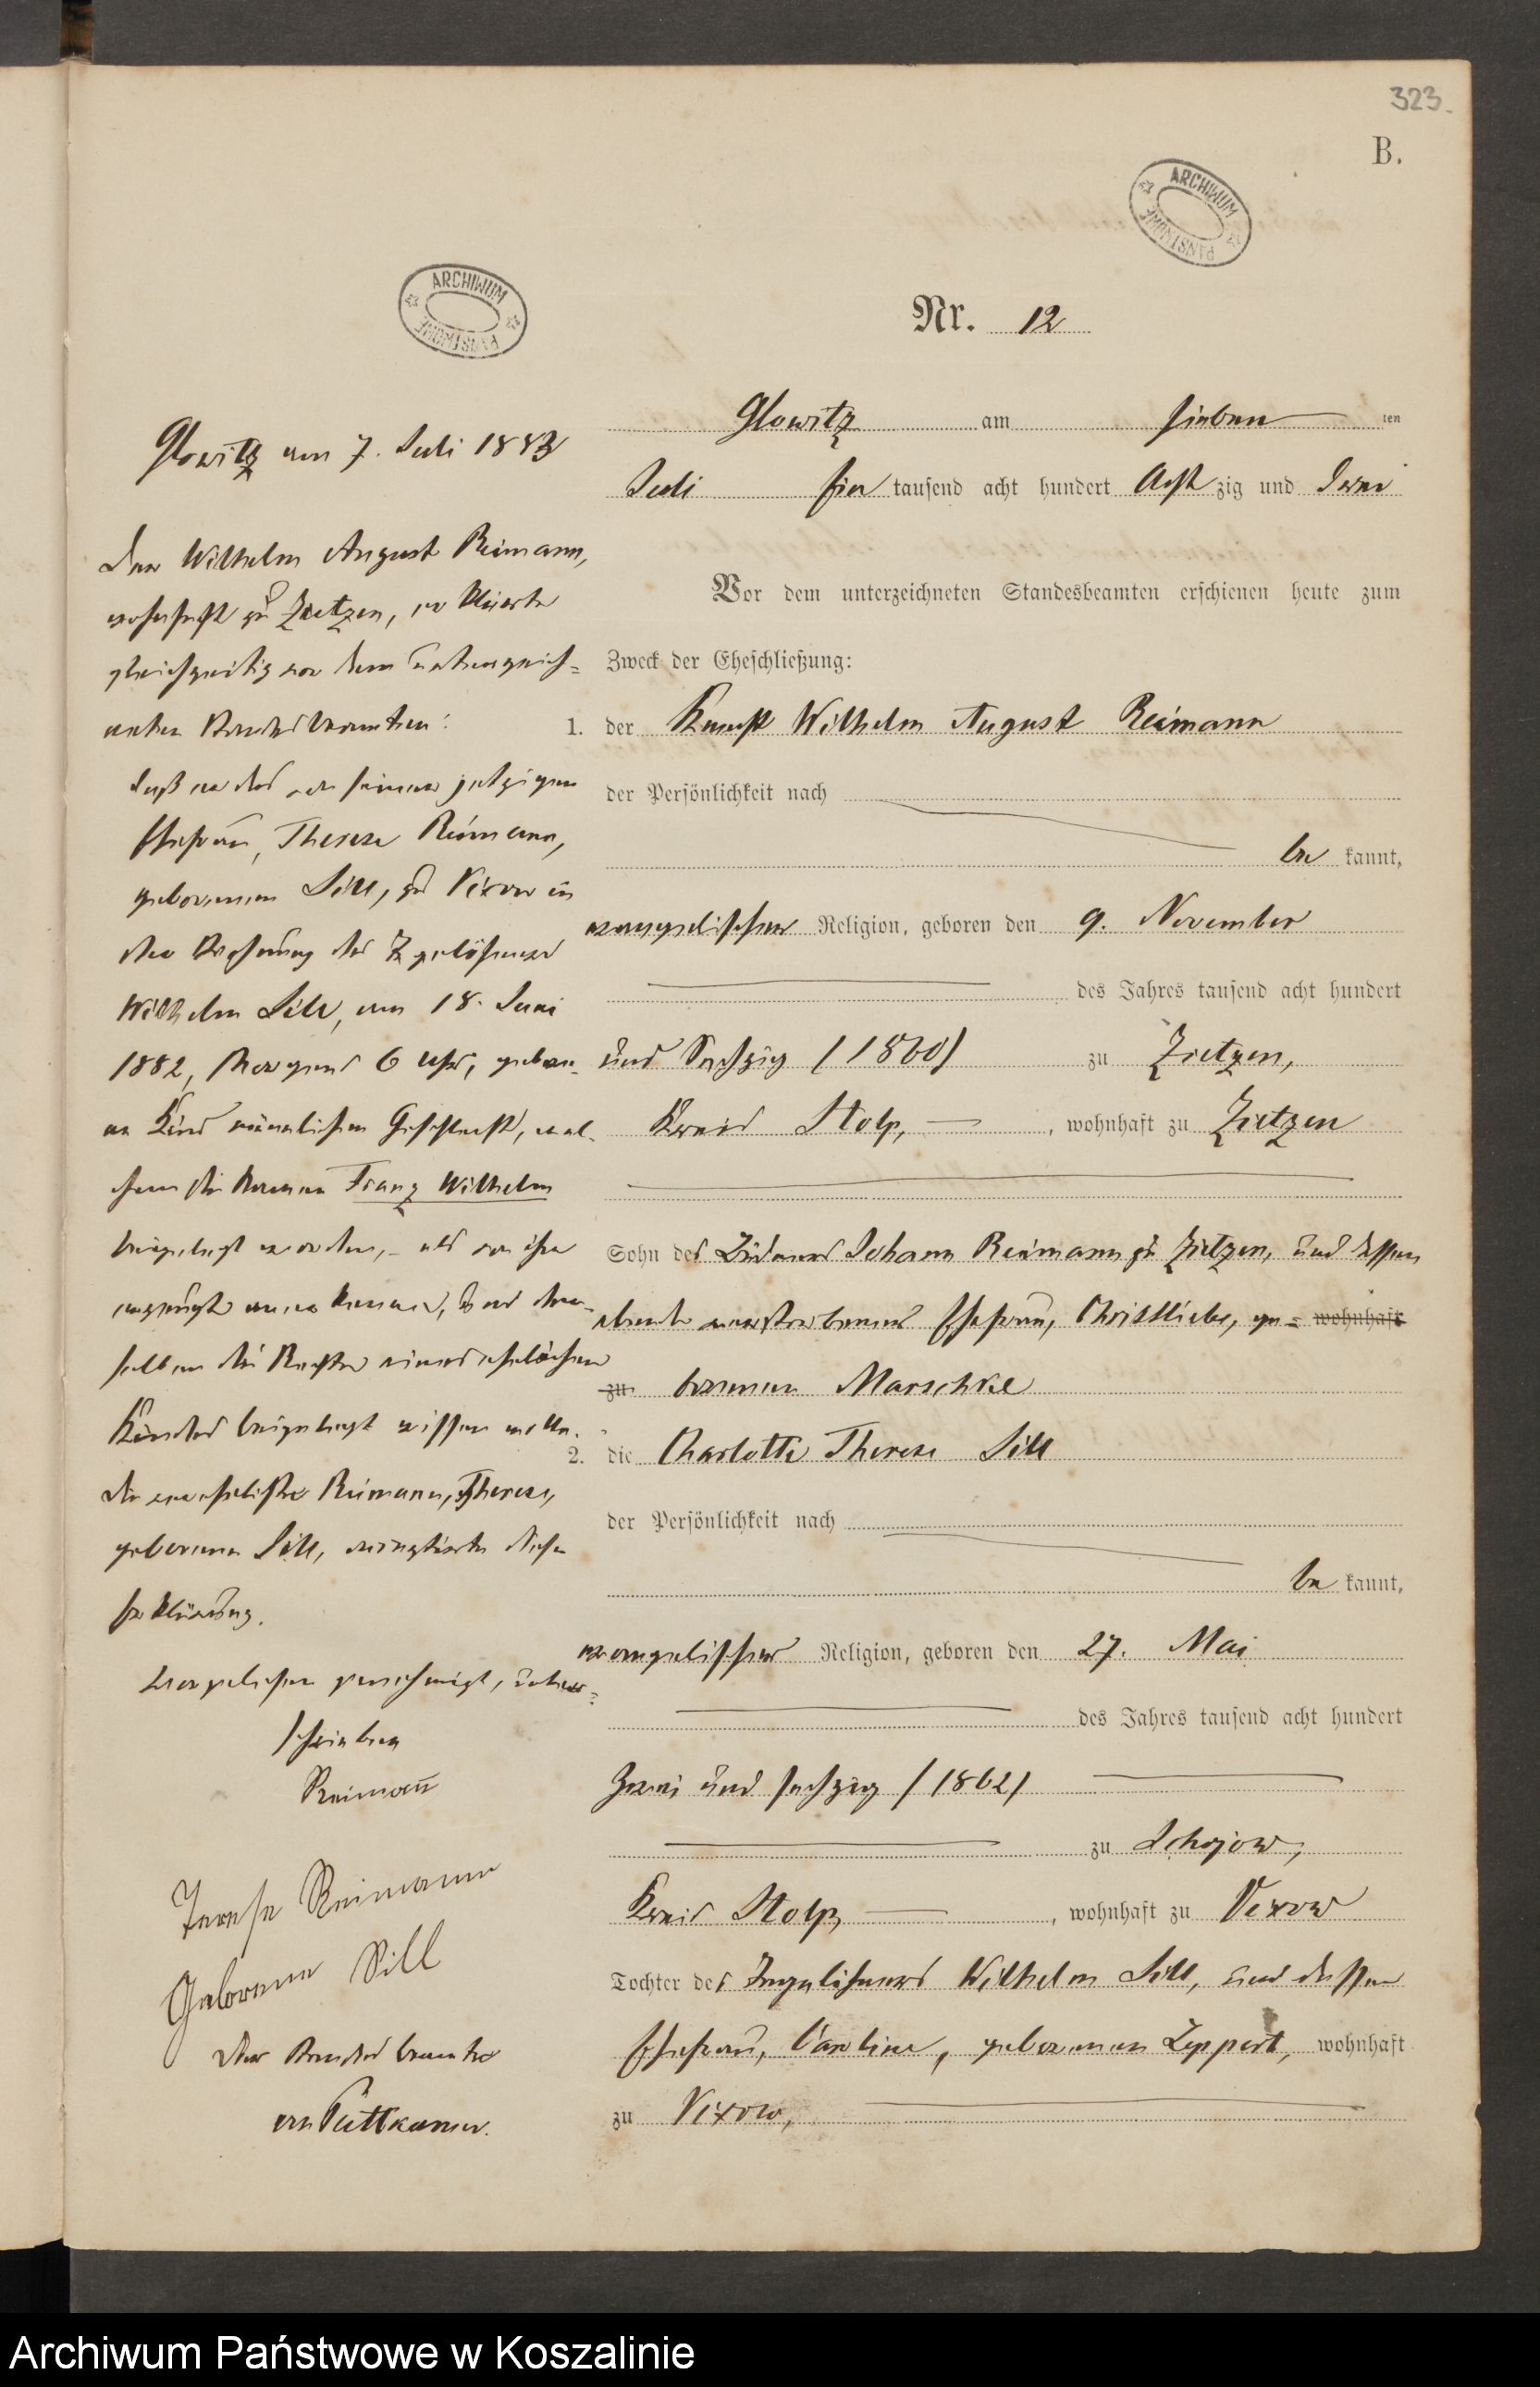 323.
B.
ARCHIWUM PAŃSTWOWE
ARCHIWUM PAŃSTWOWE
Nr. 12
Glowitz am sieben ten
Juli ein tausend acht hundert Acht zig und Zwei
Vor dem unterzeichneten Standesbeamten erschienen heute zum
Zweck der Eheschließung:
1. der Knecht Wilhelm August Reimann
der Persönlichkeit nach
be kannt,
evangelischer Religion, geboren den 9. November
des Jahres tausend acht hundert
und Sechzig (1860) zu Zietzen,
Kreis Stolp, wohnhaft zu Zietzen
Sohn des Johann Reimann zu Zietzen, und dessen
verstorbenen Ehefrau, Christliebe, ge= wohnhaft
zu borenen Marschke
2. die Charlotte Therese Sill
der Persönlichkeit nach
be kannt,
evangelischer Religion, geboren den 27. Mai
des Jahres tausend acht hundert
zwei und sechzig (1862)
zu Schojow,
Kreis Stolp, wohnhaft zu Vixow
Tochter des Wilhelm Sill, und dessen
Ehefrau, Caroline, geborenen Leppert, wohnhaft
zu Vixow,
Glowitz am 7. Juli 1883
Der Wilhelm August Reimann,
wohnhaft zu Zietzen, erklärte
gleichzeitig vor dem unterzeich=
neten Standesbeamten:
daß er das von seiner jetzigen
Ehefrau, Therese Reimann,
geborenen Sill, zu Vixow in
der Wohnung des
Wilhelm Sill, am 18. Juni
1882, Morgens 6 Uhr, gebor-
ne Kind männlichen Geschlecht, wel-
chem die Vornamen Franz Wilhelm
beigelegt worden, als von ihm
erzeugt anerkenne, und dem-
selben die Rechte eines ehelichen
Kindes beigelegt wissen wolle.
Die verehelichte Reimann, Therese,
geborene Sill, acceptirte diese
Erklärung.
Vorgelesen genehmigt, unter=
schrieben
Reimann
Terese Reimann
Geborene Sill
Der Standesbeamte
von Puttkamer.
Archiwum Państwowe w Koszalinie